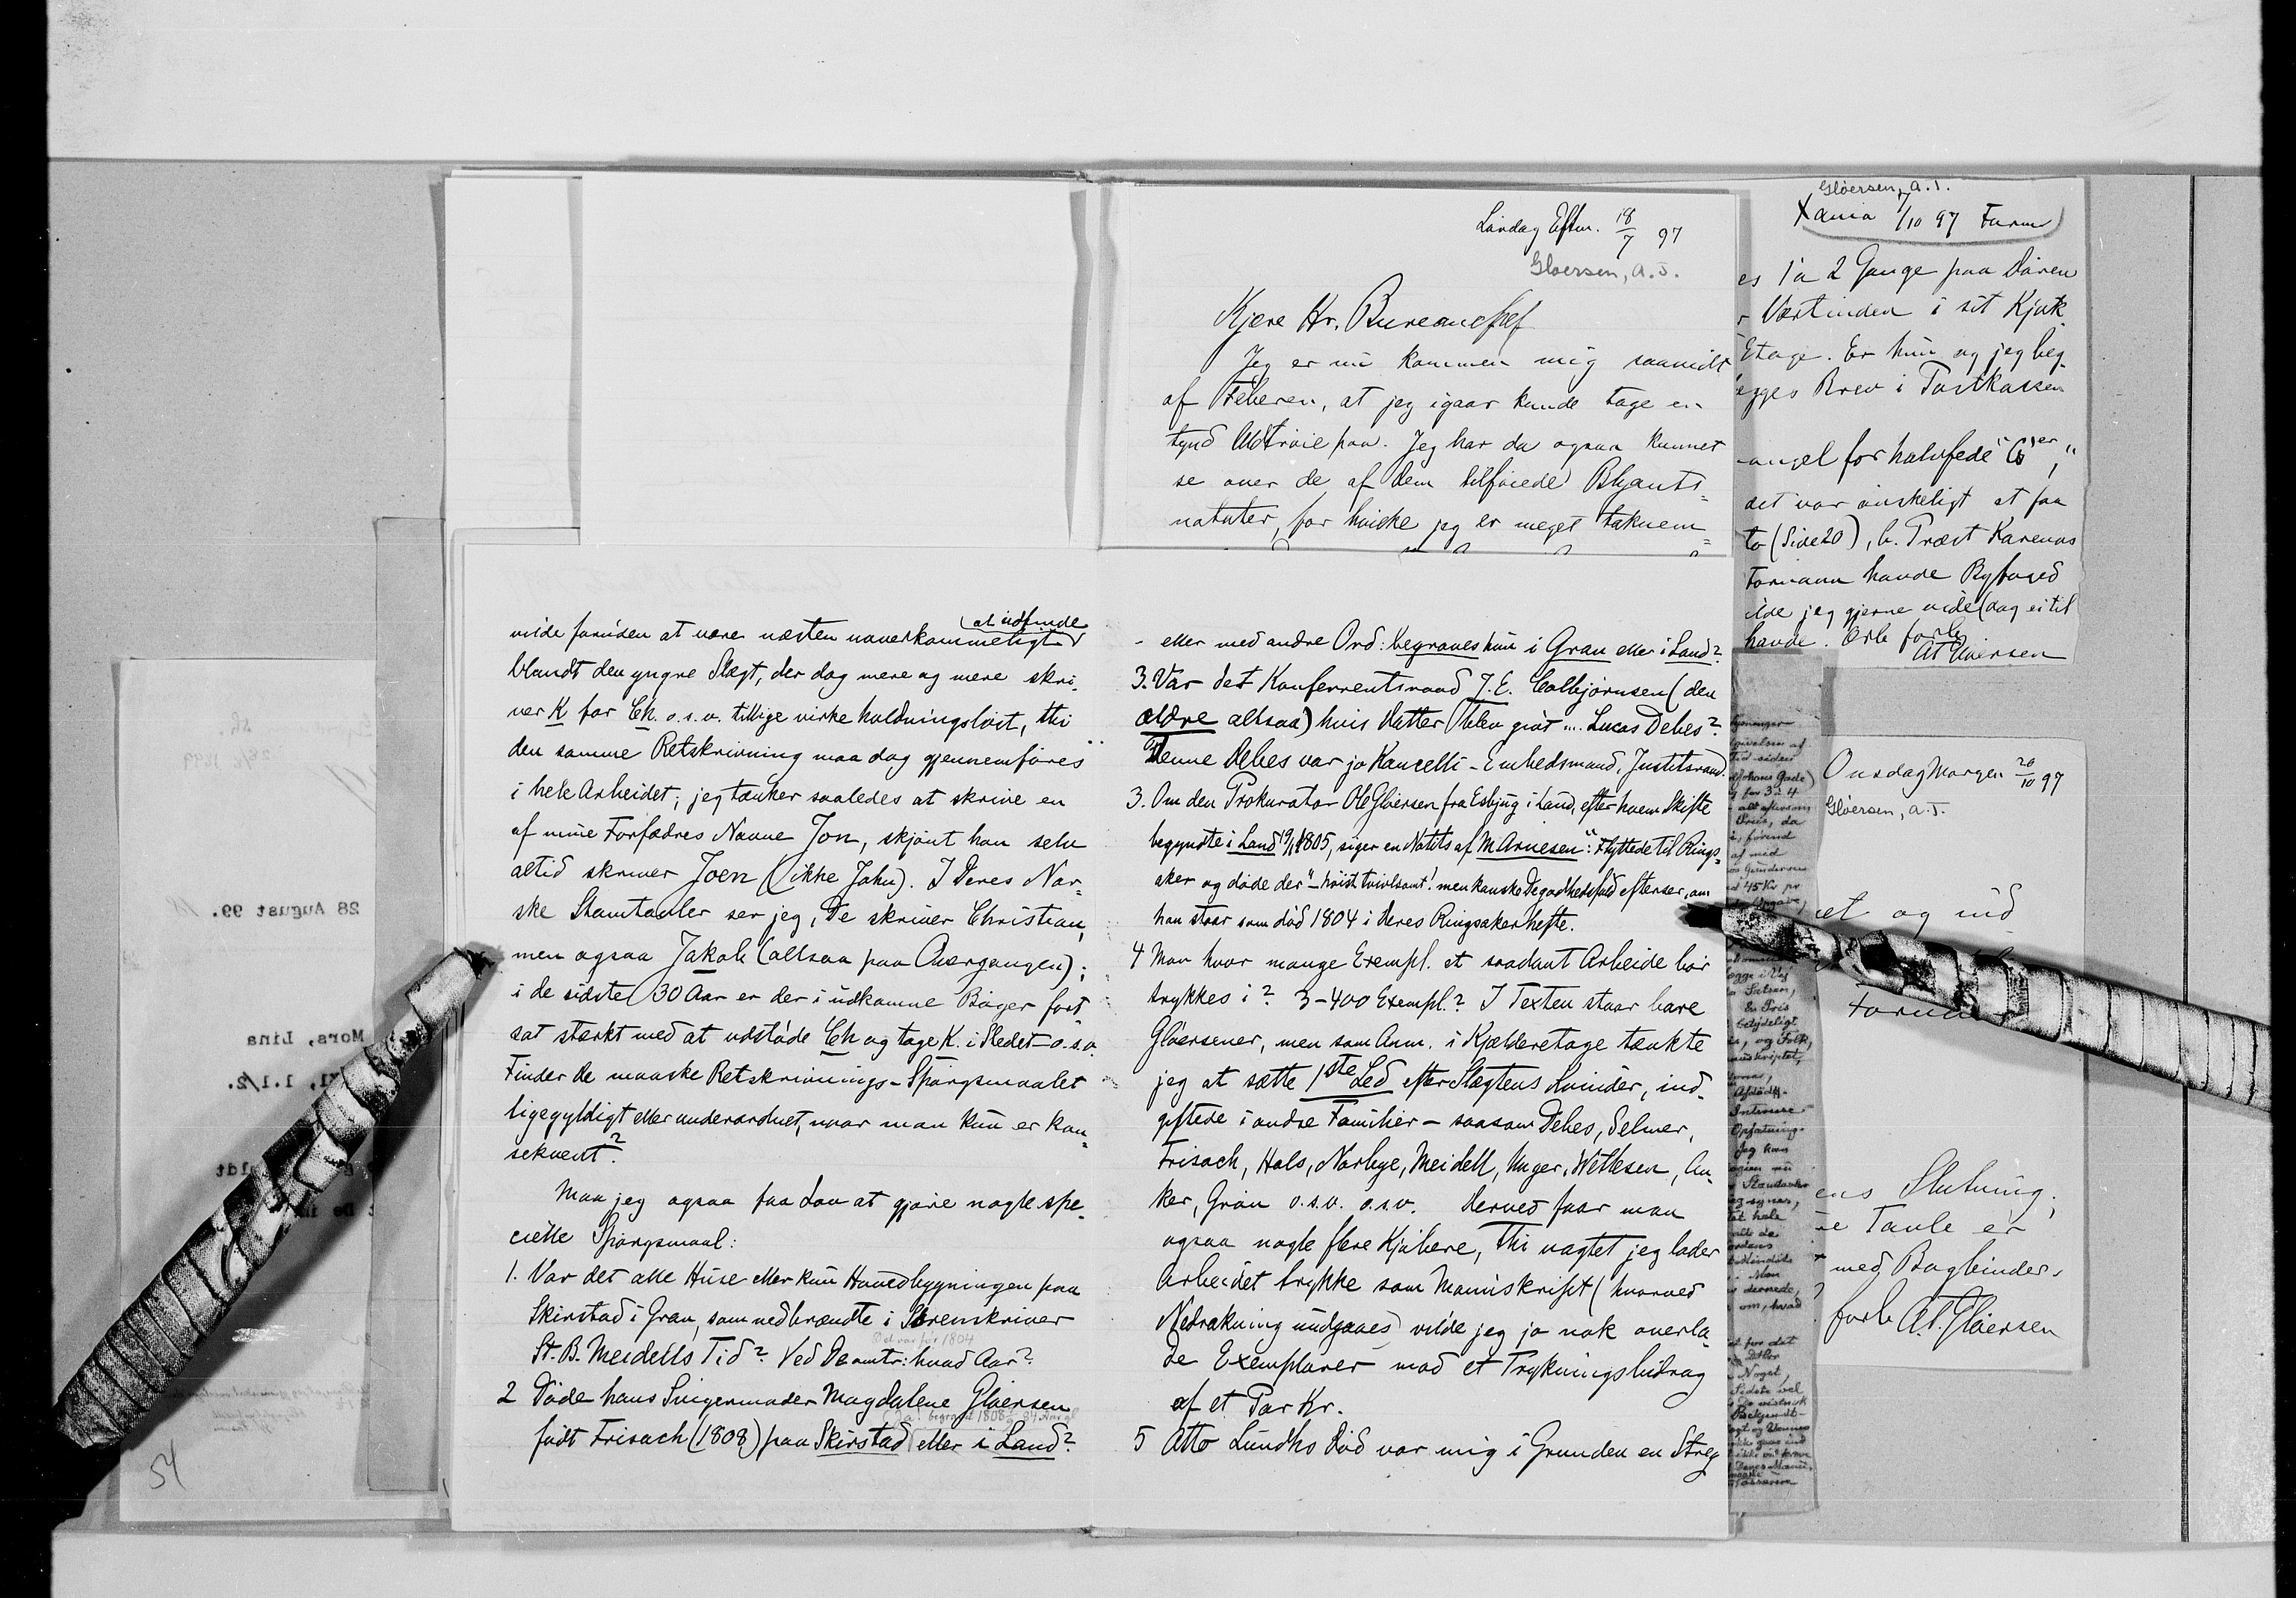 Lørdag Eftm. 18/7 97
Gløersen, A.T.
Kjære Hr. Bureauchef
Jeg er nu kommen mig saavidt
af Feberen, at jeg igaar kunde tage en
tynd Uldtrøie paa. Jeg har da ogsaa kunnet
se over de af Dem tilføiede Blyants-
notater, for hvilke jeg er meget taknem-
vide foruden at være næsten uoverkommeligt at udfinde
blandt den yngre Slægt, der dog mere og mere skri-
ver K for Ch. o.s.v. tillige virke holdningsløst, thi
den samme Retskrivning maa dog gjennemføres
i hele Arbeidet; jeg tænker saaledes at skrive en
af mine Forfædres Navne Jon, skjønt han selv
altid skriver Joen (ikke John). I Deres Nor-
ske Stamtavler ser jeg, De skriver Christian,
men ogsaa Jakob (altsaa paa Overgangen);
i de sidste 30 Aar er der i udkomne Bøger fort-
sat stærkt med at udstøde Ch og tage K. i Stedet - o.s.v.
Finder De maaske Retskrivnings-Spørgsmaalet
ligegyldigt eller underordnet, naar man kun er kon-
sekvent?
Maa jeg ogsaa faa Lov at gjøre nogle spe-
cielle Spørgsmaal:
1. Var det alle Huse eller kun Hovedbygningen paa
Skirstad i Gran, som nedbrændte i Sorenskriver
Det var før 1804
St. B. Meidells Tid? Ved De omtr: hvad Aar?
2 Døde hans Svigermoder Magdalene Gløersen
Ja! begravet 1808
født Frisach (1808) paa Skirstad eller i Land?
- eller med andre Ord: begraves hun i Gran eller i Land?
3. Var det Konferentsraad J.E. Colbjørnsen (den
ældre altsaa) hvis Datter blev gift ... Lucas Debes?
Denne Debes var jo Kancelli-Embedsmand, Justitsraad.
3. Om den Prokurator Ole Gløersen fra Esbjug i Land, efter hvem Skifte
begyndte i Land 1805, siger en Notits af M Arnesen: "Flyttede til Rings-
aker og døde der" - høist tvivlsomt! men kanske De godhedsfuld efterser, om
han staar som død 1804 i Deres Ringsakerhefte.
4 Mon hvor mange Exempl. et saadant Arbeide bør
trykkes i? 3-400 Exempl.? I Texten staar bare
Gløersener, men som Anm. i Kjælderetage tænkte
jeg at sætte 1ste Led efter Slægtens Kvinder, ind-
giftede i andre Familier - saasom Debes, Selmer,
Frisach, Hals, Norbye, Meidell, Unger, Wetlesen, An-
ker, Grøn o.s.v. o.s.v. Derved faar man
ogsaa nogle flere Kjøbere, thi uagtet jeg lader
Arbeidet trykke som Manuskript (hvorved
Nedrakning undgaaes) vilde jeg jo nok overla-
de Exemplarer mod et Trykningsbidrag
af et Par Kr.
5 Otto Lundhs Død var mig i Grunden en Streg
Gløersen, A.T.
Xania 7/10 97 Form
es 1 à 2 Gange paa Døren
Værtinden i sit Kjøk
Etage. Er hun og jeg beg-
ægges Brev i Postkassen
angel for halvfede "G"er,
det var ønskeligt at faa
to (Side 20), b. Præst Karenas
Formann havde Byfoged
ilde jeg gjerne vide (dog ei til
havde. Ærb forb
AT Gløersen
Onsdag Morgen 20/10 97
Gløersen, A.T.
et og ind
Slutning;
Tavle er
med Bogbinder-
forb A.T. Gløersen
28 August 99.
Mors, Lina
1.1/2.
54